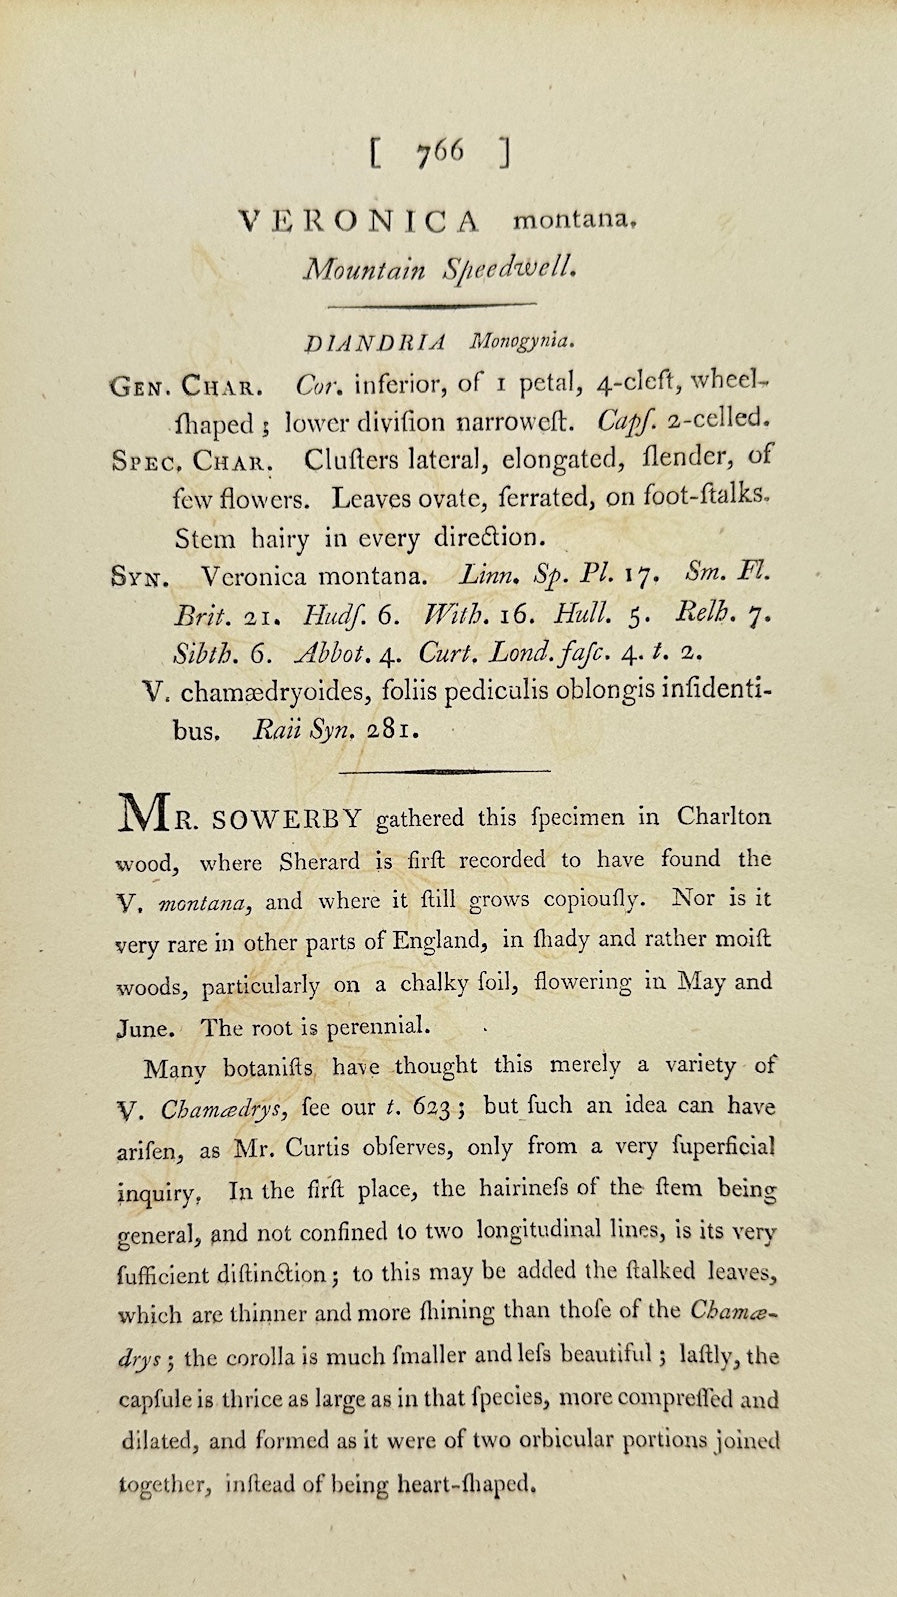 [ 766 ]
VERONICA montana.
Mountain Speedwell.
DIANDRIA Monogynia.
GEN. CHAR. Cor. inferior, of 1 petal, 4-cleft, wheel-
ſhaped ; lower diviſion narroweſt. Capſ. 2-celled.
SPEC. CHAR. Cluſters lateral, elongated, ſlender, of
few flowers. Leaves ovate, ſerrated, on foot-ſtalks.
Stem hairy in every direction.
SYN. Veronica montana. Linn. Sp. Pl. 17. Sm. Fl.
Brit. 21. Hudſ. 6. With. 16. Hull. 5. Relh. 7.
Sibth. 6. Abbot. 4. Curt. Lond. faſc. 4. t. 2.
V. chamædryoides, foliis pediculis oblongis inſidenti-
bus. Raii Syn. 281.
MR. SOWERBY gathered this ſpecimen in Charlton
wood, where Sherard is firſt recorded to have found the
V. montana, and where it ſtill grows copiouſly. Nor is it
very rare in other parts of England, in ſhady and rather moiſt
woods, particularly on a chalky ſoil, flowering in May and
June. The root is perennial.
Many botaniſts have thought this merely a variety of
V. Chamædrys, ſee our t. 623 ; but ſuch an idea can have
ariſen, as Mr. Curtis obſerves, only from a very ſuperficial
inquiry. In the firſt place, the hairineſs of the ſtem being
general, and not confined to two longitudinal lines, is its very
ſufficient diſtinction ; to this may be added the ſtalked leaves,
which are thinner and more ſhining than thoſe of the Chamæ-
drys ; the corolla is much ſmaller and leſs beautiful ; laſtly, the
capſule is thrice as large as in that ſpecies, more compreſſed and
dilated, and formed as it were of two orbicular portions joined
together, inſtead of being heart-ſhaped.